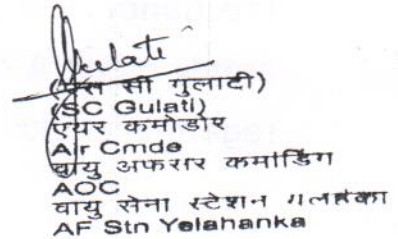 Gulati
(एस सी गुलाटी)
(SC Gulati)
एयर कमोडोर
Air Cmde
वायु अफसर कमांडिंग
AOC
वायु सेना स्टेशन यलहंका
AF Stn Yelahanka